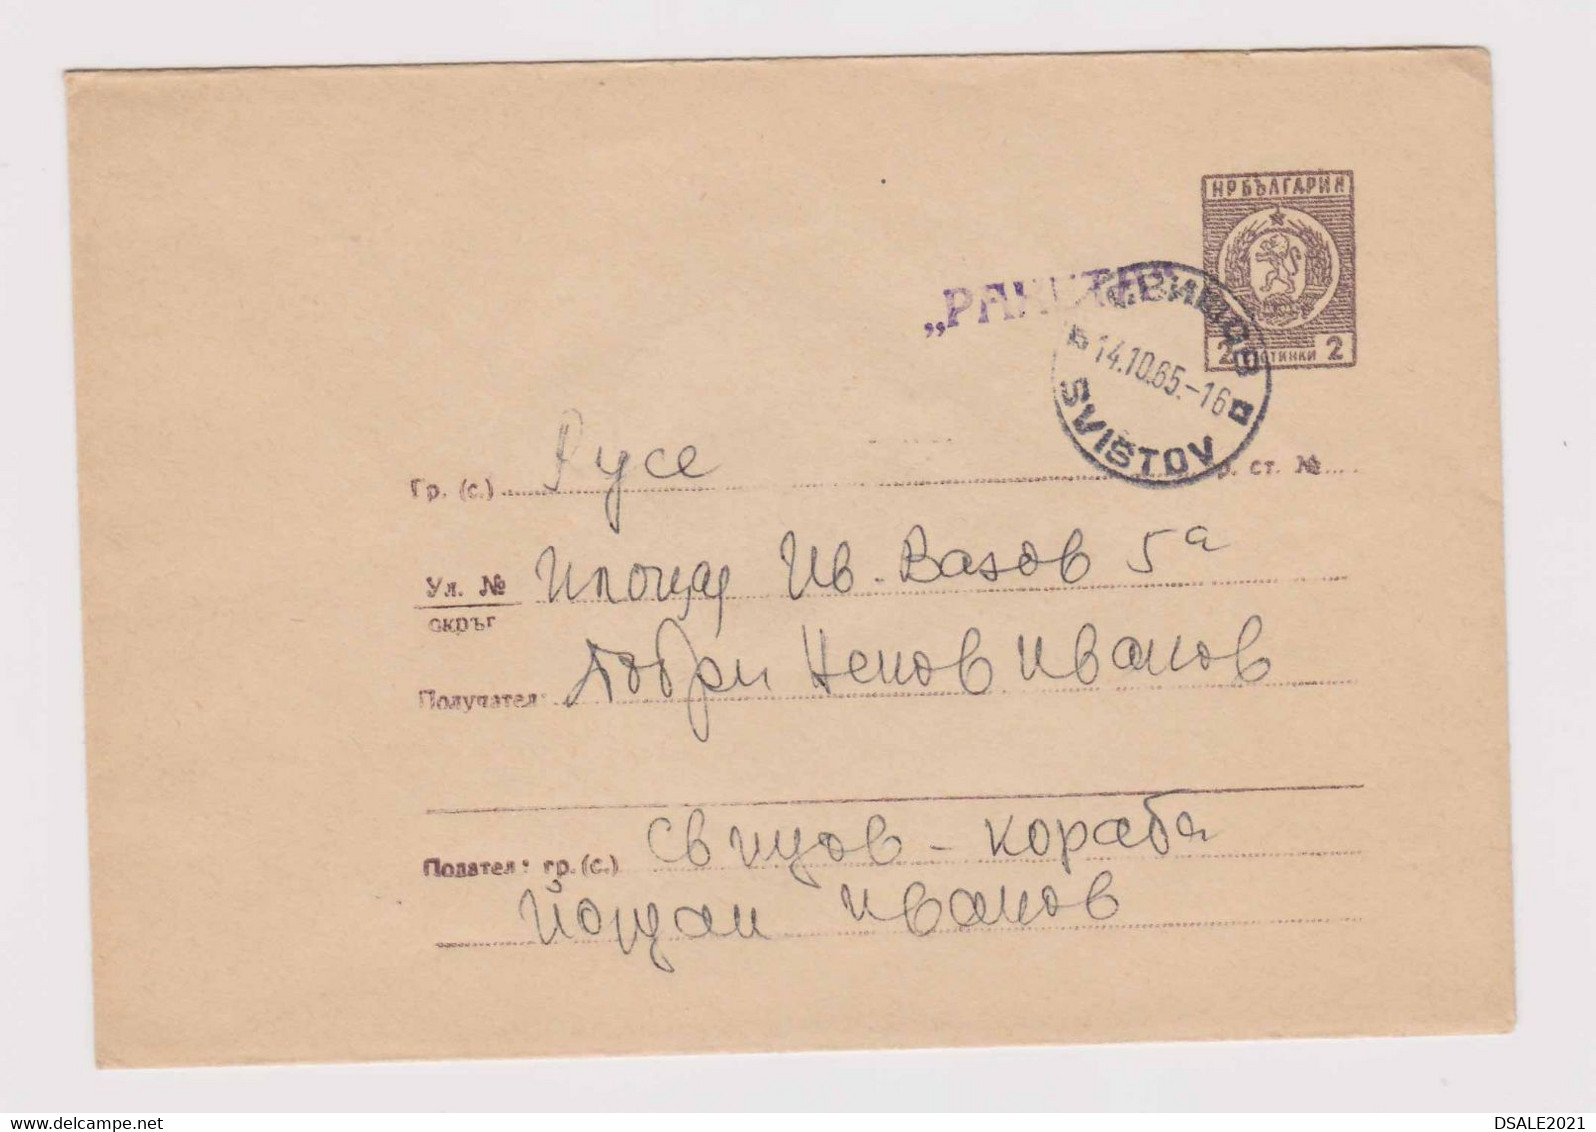 НР БЪЛГАРИЯ
2 СТИНКИ 2
СВИЩОВ
14.10.65.-16
SVIŠTOV
Гр. (с.) Русе ст. №
Ул. № Площад Ив. Вазов 5а
окръг
Получател: Добри Ненов Иванов
Подател: гр. (с.) Свищов - кораба
Йордан Иванов
DSALE2021